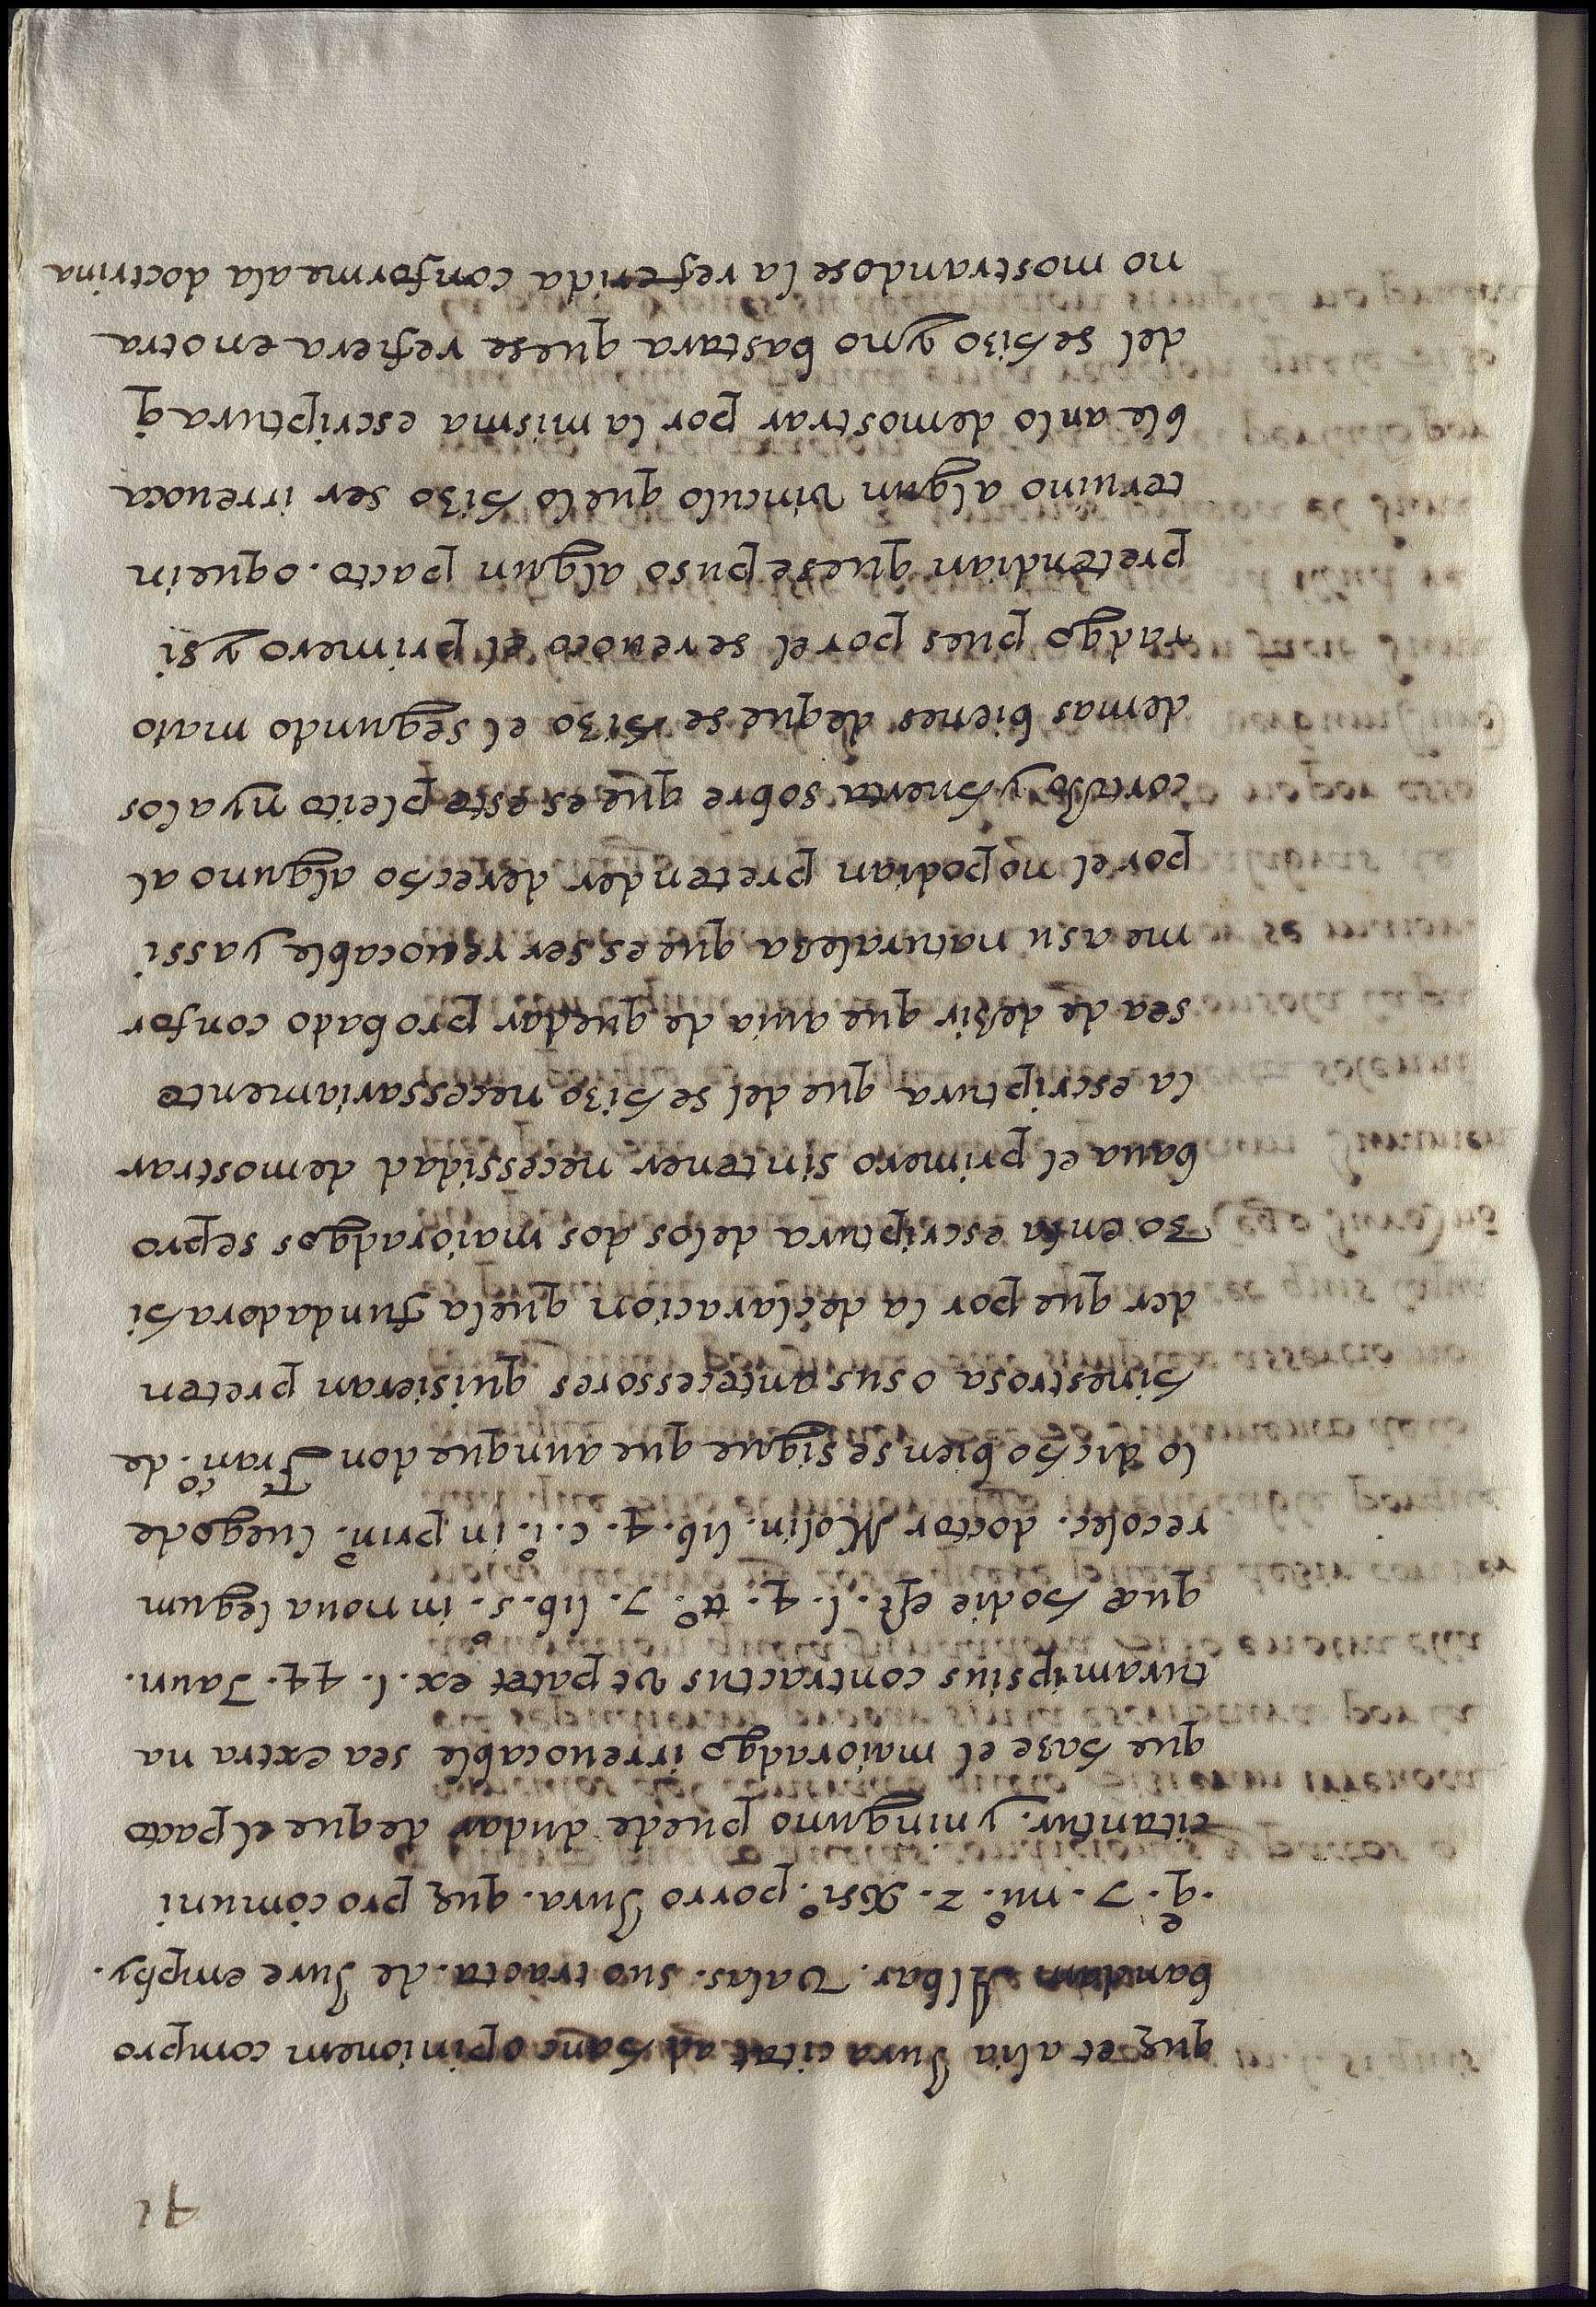 41
que et alia Jura citat ad hanc opinionem compro
bandam Albar. Valas. suo tracta. de Jure emphy.
.qe. 7. nuo. 2. Xsio. porro Jura. que pro comuni
citantur. y ninguno puede dudar de que el pacto
que haze el maioradgo irreuocable sea extra na
turam ipsius contractus vt patet ex. l. 44. Taur.
quæ hodie est. l. 4. tto. 7. lib. 5. in noua legum
recolec. doctor Molin. lib. 4. c. io. in prino. luego de
lo dicho bien se sigue que aunque don Franco. de
hinestrosa o sus antecessores quisieran preten
der que por la declaracion que la fundadora hi
zo en la escriptura de los dos maioradgos se pro
baua el primero sin tener necessidad de mostrar
la escriptura que del se hizo necessariamente
sea de desir que auia de quedar probado confor
me a su naturaleza que es ser reuocable y assi
por el no podian pretender derecho alguno al
cortijo y huerta sobre que es este pleito ny a los
demas bienes de que se hizo el segundo maio
radgo pues por el se reuoco el primero y si
pretendian que se puso algun pacto. o que in
teruino algun vinculo que lo hizo ser irreuoca
ble anlo de mostrar por la misma escriptura q̃
del se hizo y no bastara que se refiera en otra
no mostrandose la referida conforme a la doctrina